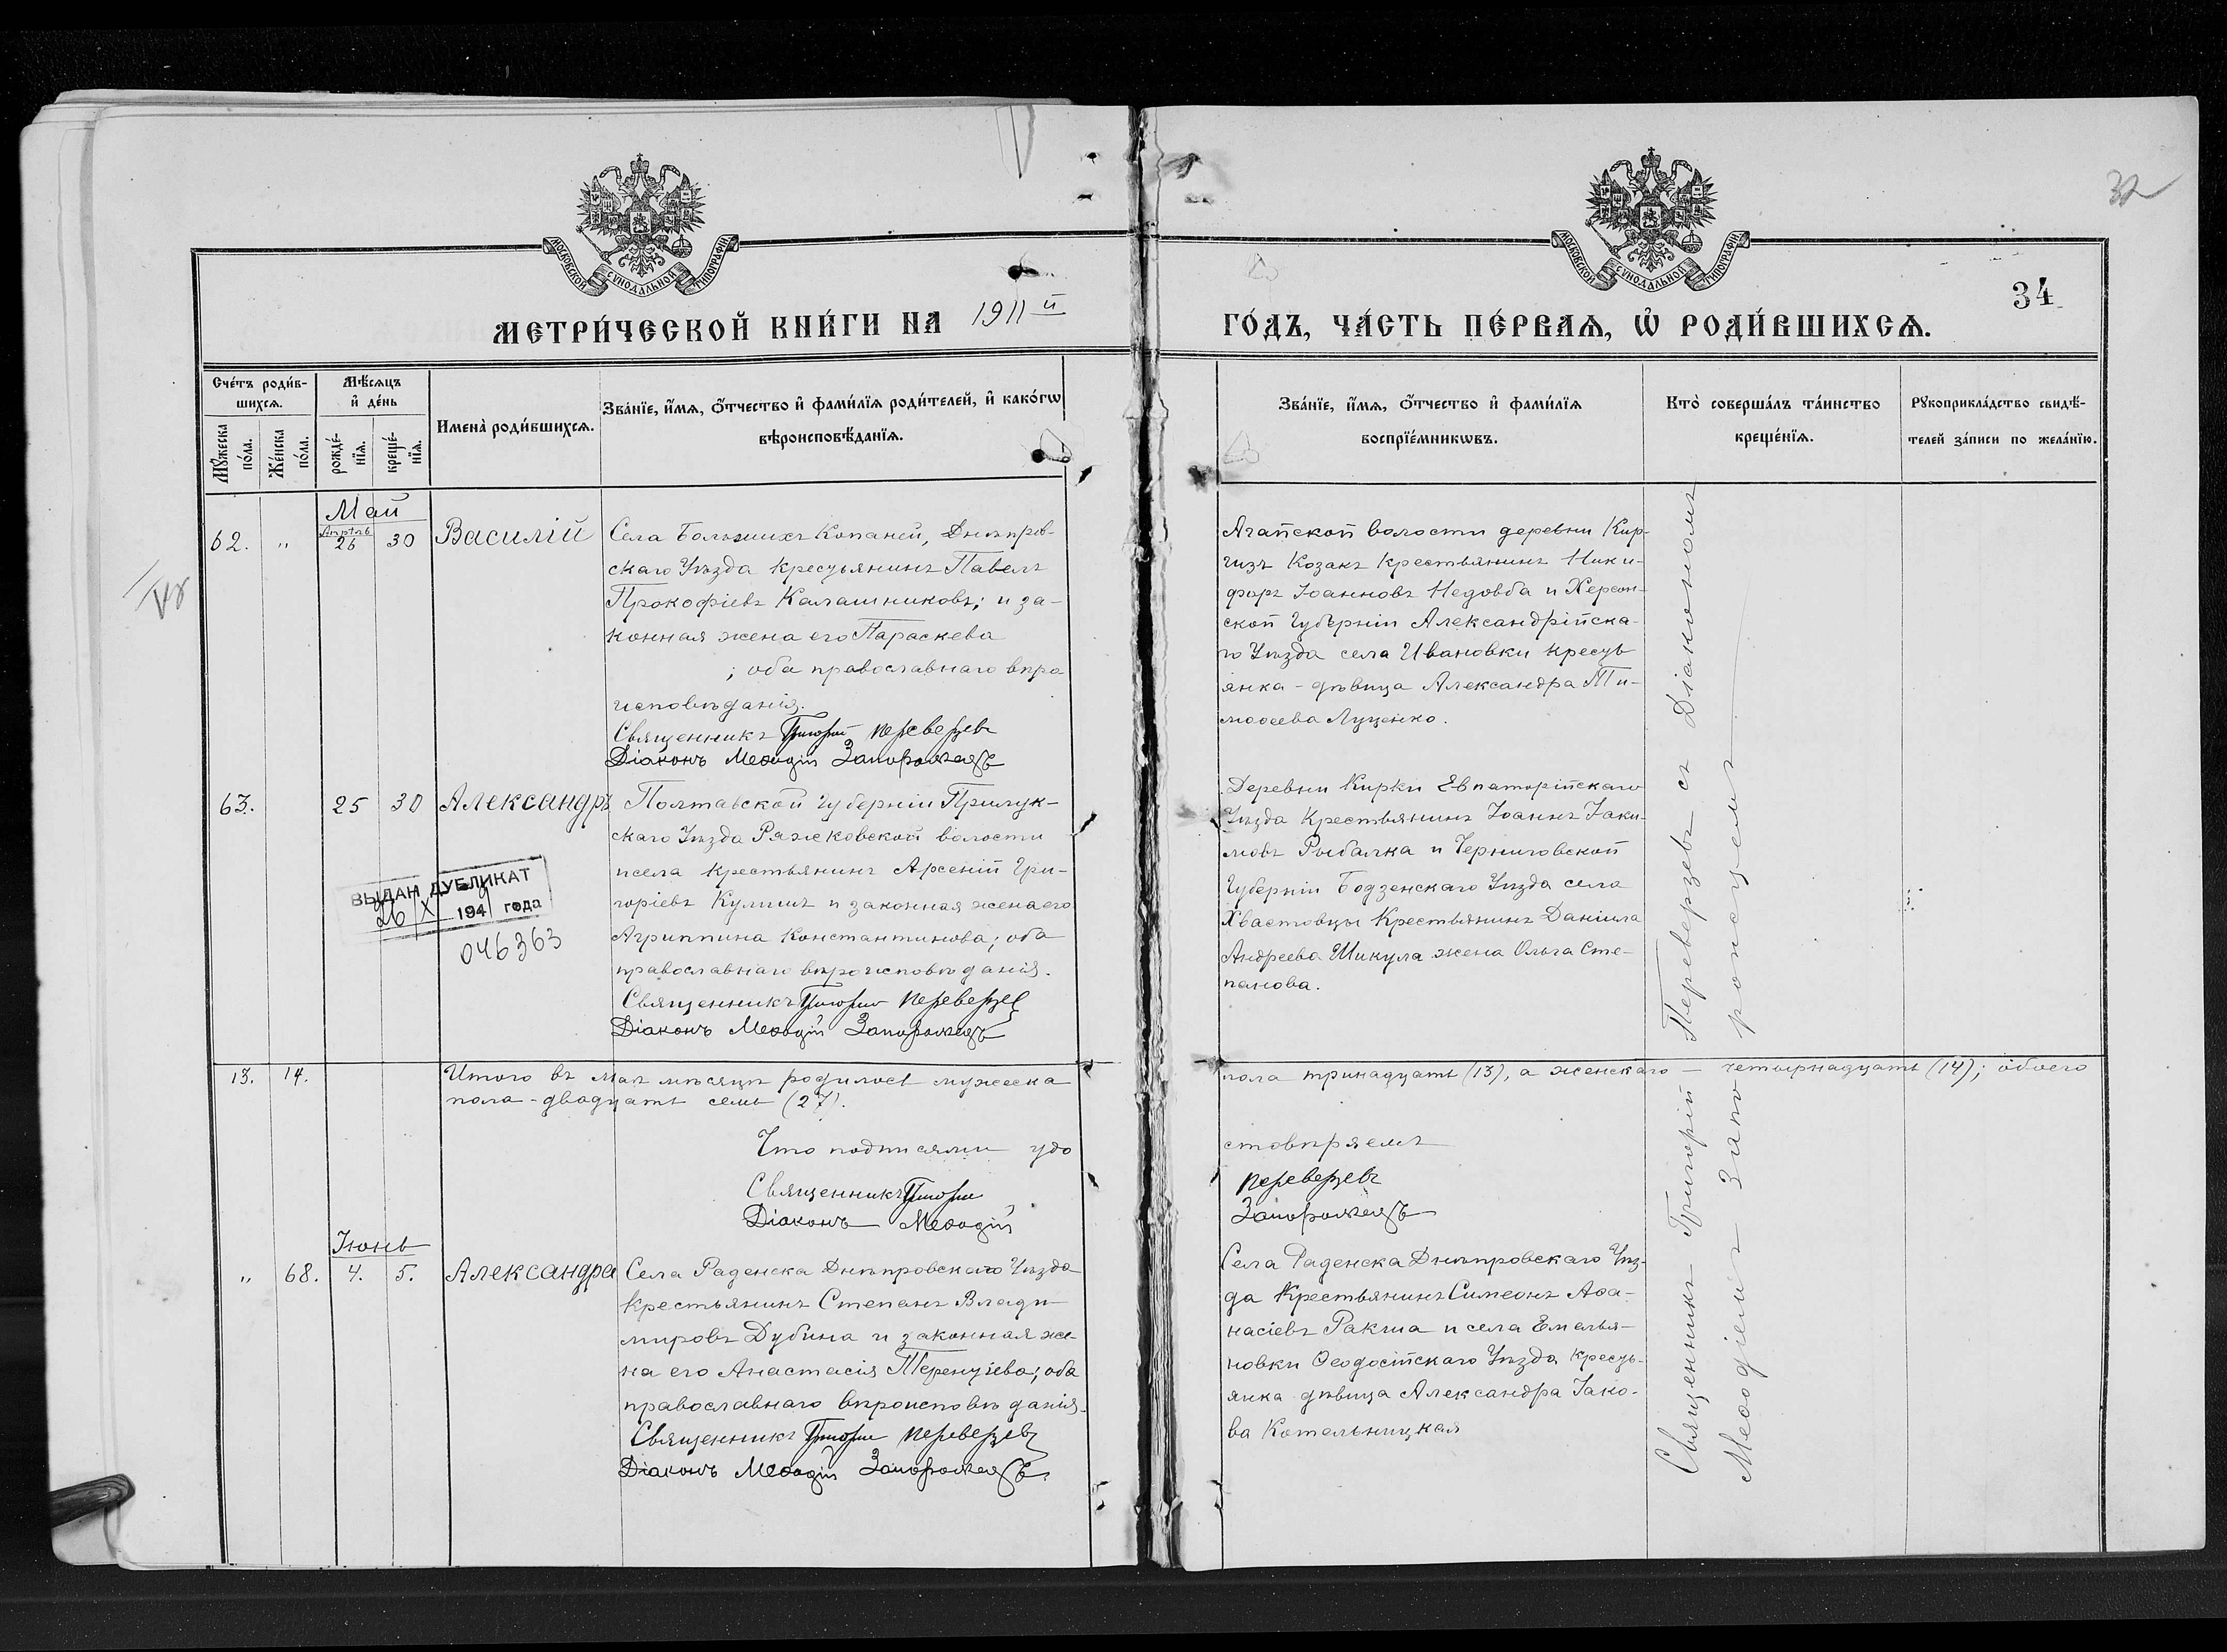 32
34
МОСКОВСКОЙ СѴНОДАЛЬНОЙ ТИПОГРАФІИ
МОСКОВСКОЙ СѴНОДАЛЬНОЙ ТИПОГРАФІИ
МЕТРИ́ЧЕСКОЙ КНИ́ГИ НА 1911й ГО́ДЪ, ЧА́СТЬ ПЕ́РВАѦ, Ѡ҆ РОДИ́ВШИХСѦ.
Сче́тъ роди́в-
шихсѧ.
Мѹ́жеска по́ла.
Же́нска по́ла.
Мѣ́сѧцъ
и҆ де́нь
рожде́-
нїѧ.
креще́-
нїѧ.
Имена̀ роди́вшихсѧ.
Зва́нїе, и҆́мѧ, ѻ҆́тчество и҆ фами́лїѧ роди́телей, и҆ како́гѡ
вѣроисповѣ́данїѧ.
Зва́нїе, и҆́мѧ, ѻ҆́тчество и҆ фами́лїѧ
воспрїе́мникѡвъ.
Кто̀ соверша́лъ та́инство
креще́нїѧ.
Рꙋкоприкла́дство свидѣ́-
телей за́писи по жела́нїю.
Май
62. " Апрѣль 26 30 Василій
Села Большихъ Копаней, Днѣпров-
скаго Уѣзда крестьянинъ Павелъ
Прокофіевъ Калашниковъ; и за-
конная жена его Параскева
; оба православнаго вѣро
исповѣданія.
Священникъ Григорій Переверзевъ
Діаконъ Меѳодій Запорожецъ
Агайской волости деревни Кир-
гизъ Козакъ крестьянинъ Ники-
форъ Іоанновъ Недовба и Херсон-
ской Губерніи Александрійска-
го Уѣзда села Ивановки кресть
янка - дѣвица Александра Ти-
моѳеева Луценко.
63. 25 30 Александръ
Полтавской Губерніи Прилук-
скаго Уѣзда Ряжковской волости
и села крестьянинъ Арсеній Гри-
горіевъ Кулишъ и законная жена его
Агриппина Константинова; оба
православнаго вѣроисповѣданія.
Священникъ Григорій Переверзев
Діаконъ Меѳодій Запорожецъ
Деревни Кирки Евпаторійскаго
Уѣзда Крестьянинъ Іоаннъ Іаки-
мовъ Рыбалка и Черниговской
Губерніи Бодзенскаго Уѣзда села
Хвастовцы Крестьянинъ Даніила
Андреева Шикула жена Ольга Сте-
панова.
ВЫДАН ДУБЛИКАТ
26/X 1949 года
046363
13. 14. Итого въ маѣ мѣсяцѣ родилось мужеска пола тринадцать (13), а женскаго — четырнадцать (14); обоего
пола - двадцать семь (27).
Что подписями удостовѣряемъ
Священникъ Григорій Переверзевъ
Діаконъ Меѳодій Запорожецъ
Іюнь
" 68. 4. 5. Александра
Села Раденска Днѣпровскаго Уѣзда
Крестьянинъ Степанъ Влади-
мировъ Дубина и законная же-
на его Анастасія Терентіева; оба
православнаго вѣроисповѣданія.
Священникъ Григорій Переверзев
Діаконъ Меѳодій Запорожецъ.
Села Раденска Днѣпровскаго Уѣз-
да Крестьянинъ Симеонъ Аѳа-
насіевъ Ракша и села Емелья-
новки Ѳеодосійскаго Уѣзда кресть-
янка дѣвица Александра Іако-
ва Котельницкая
Священникъ Григорій Переверзевъ съ Діакономъ
Меѳодіемъ Запорожцемъ